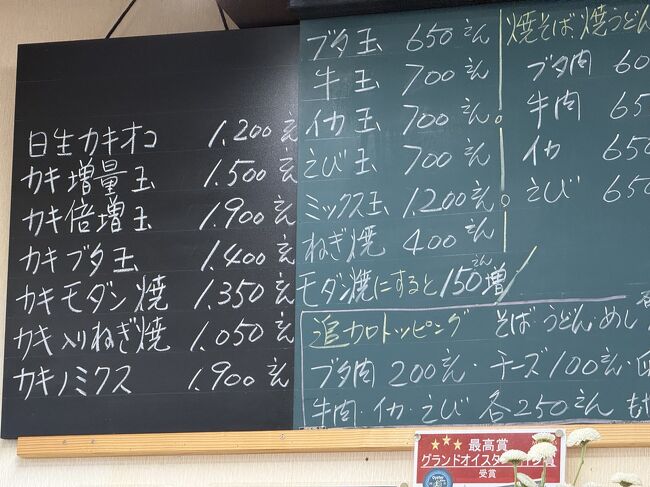 日生カキオコ 1,200えん
カキ増量玉 1,500えん
カキ倍増玉 1,900えん
カキブタ玉 1,400えん
カキモダン焼 1,350えん
カキ入りねぎ焼 1,050えん
カキノミクス 1,900えん
ブタ玉 650えん
牛玉 700えん
イカ玉 700えん
えび玉 700えん
ミックス玉 1,200えん
ねぎ焼 400えん
モダン焼にすると150えん増
焼そば 焼うどん
ブタ肉 60
牛肉 65
イカ 650
えび 650
追加トッピング そば・うどん・めし
ブタ肉 200えん・チーズ100えん・
牛肉・イカ・えび 各250えん
最高賞
グランドオイスター
受賞